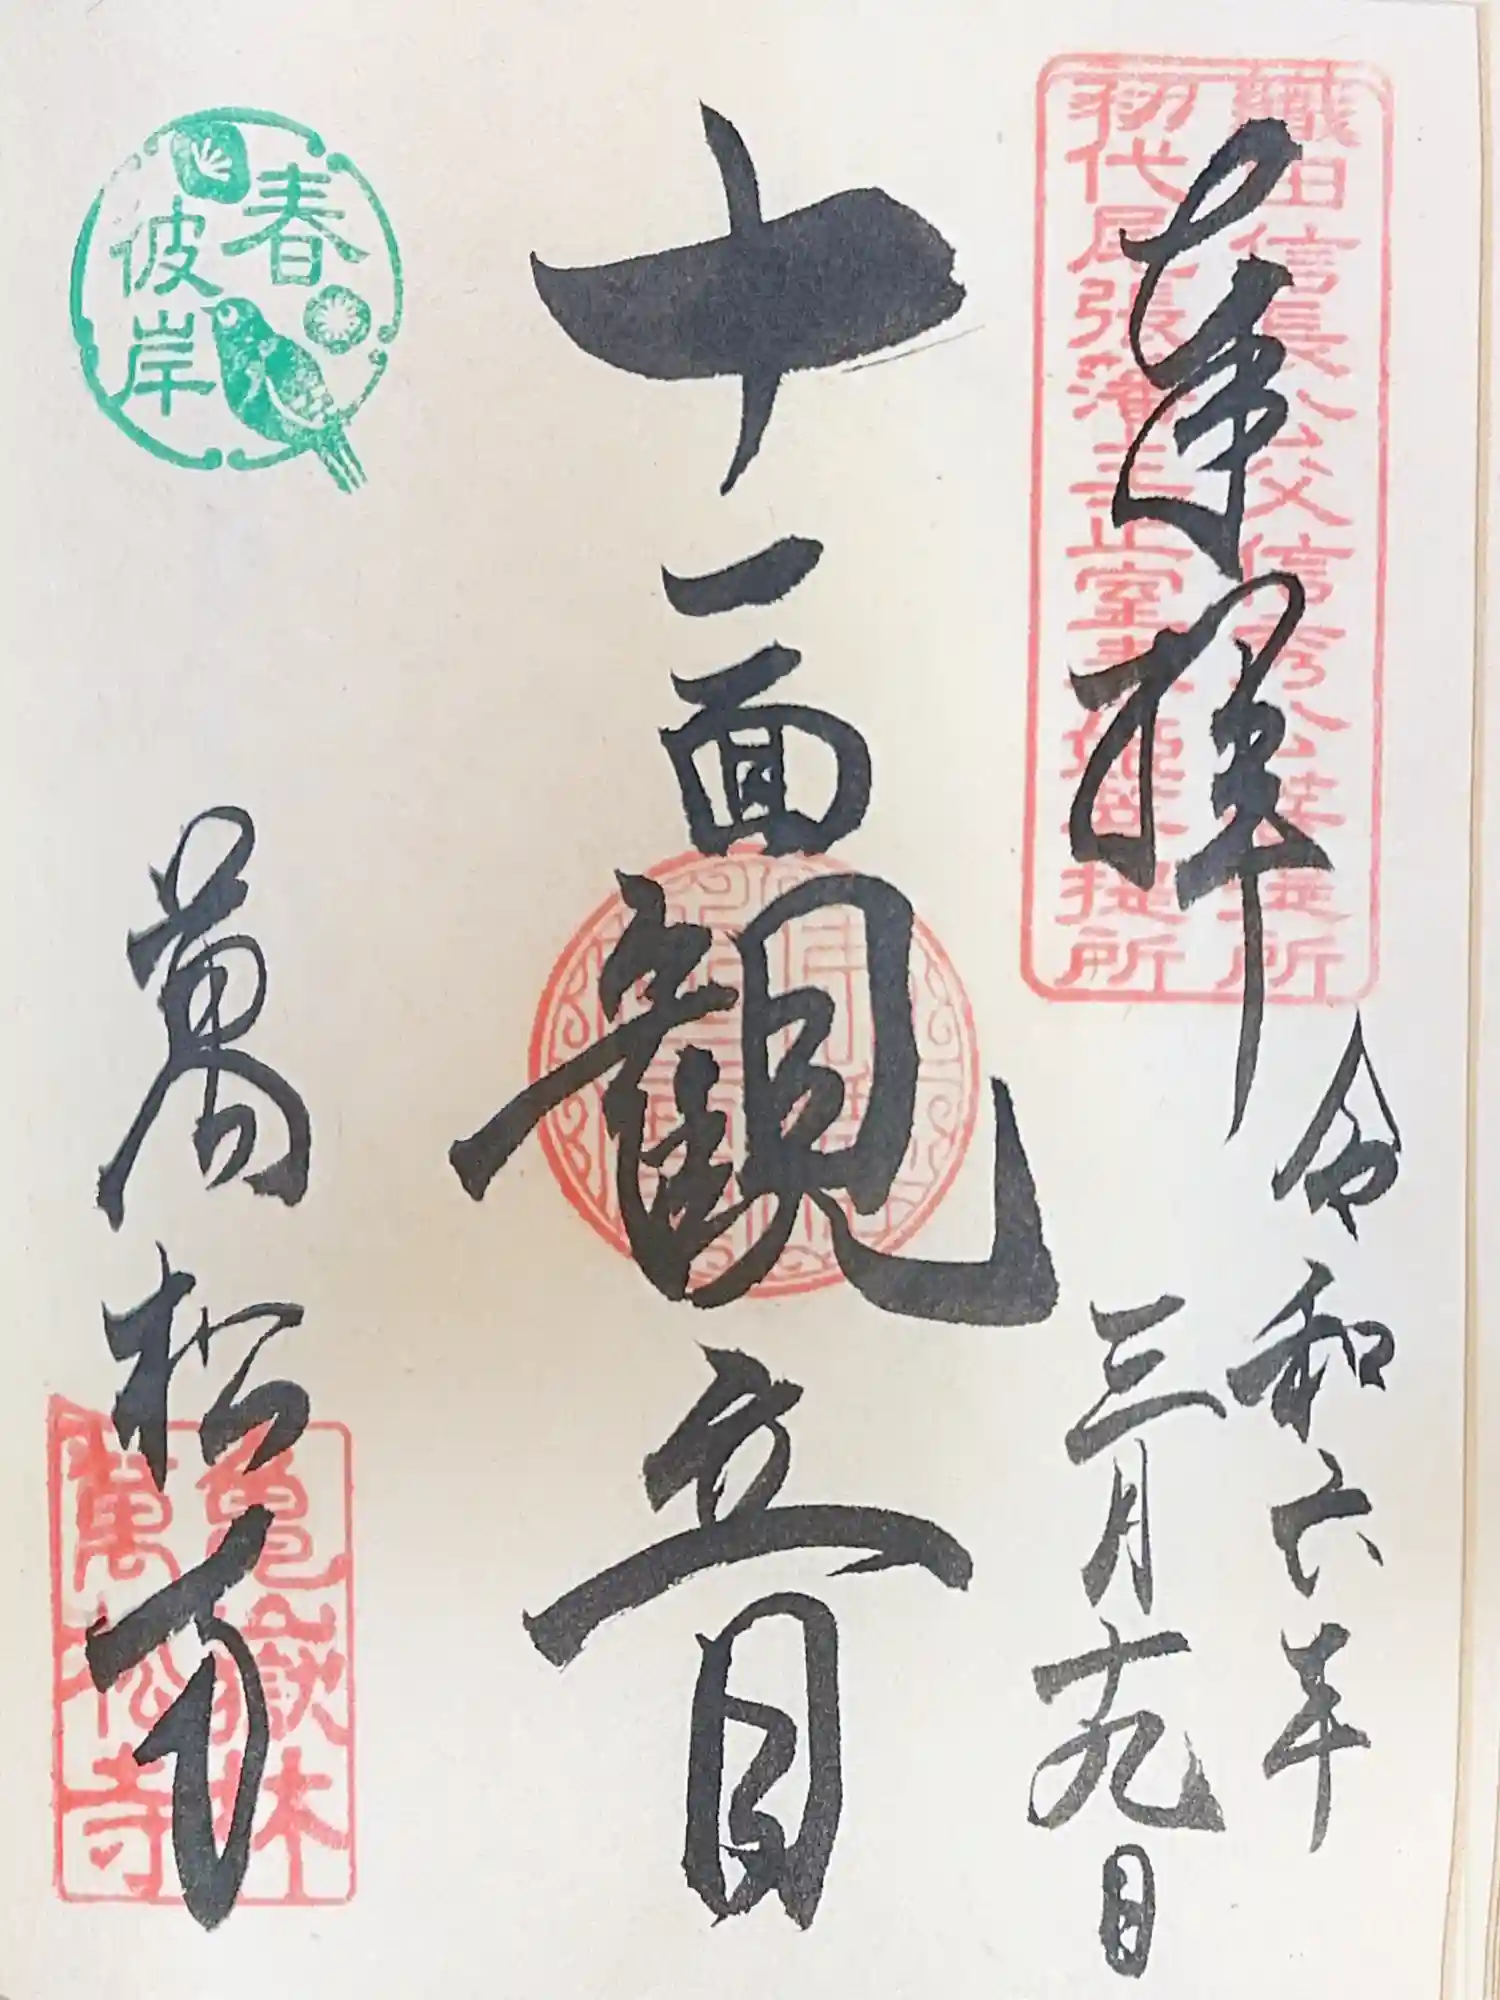 織田信長公父信秀公菩提所
初代尾張藩主正室春姫菩提所
奉拝
令和六年
三月十九日
十一面観立音
春
彼岸
萬松寺
亀嶽林
萬松寺